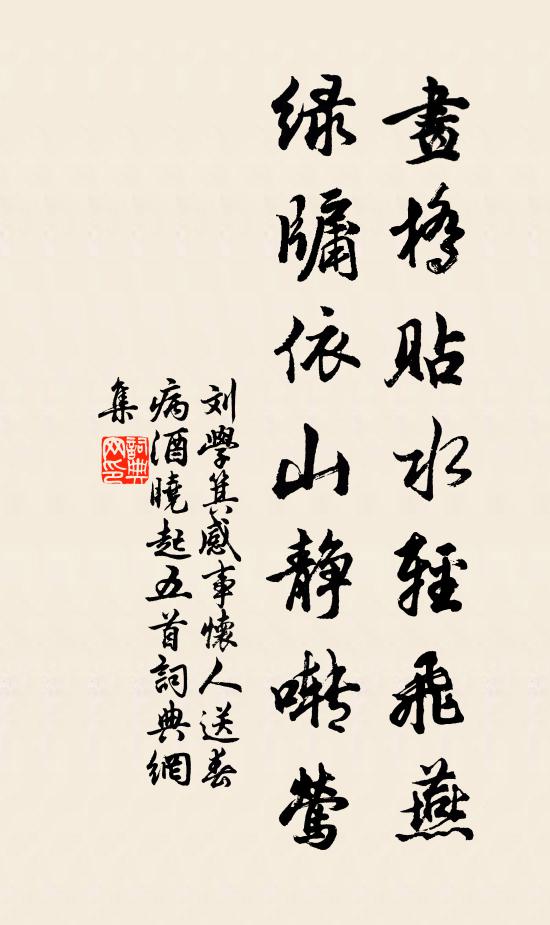 畫橋貼水輕飛燕
绿牖依山靜囀鶯
刘學箕感事懷人送春
病酒曉起五首詞典網
集
詞典
网印